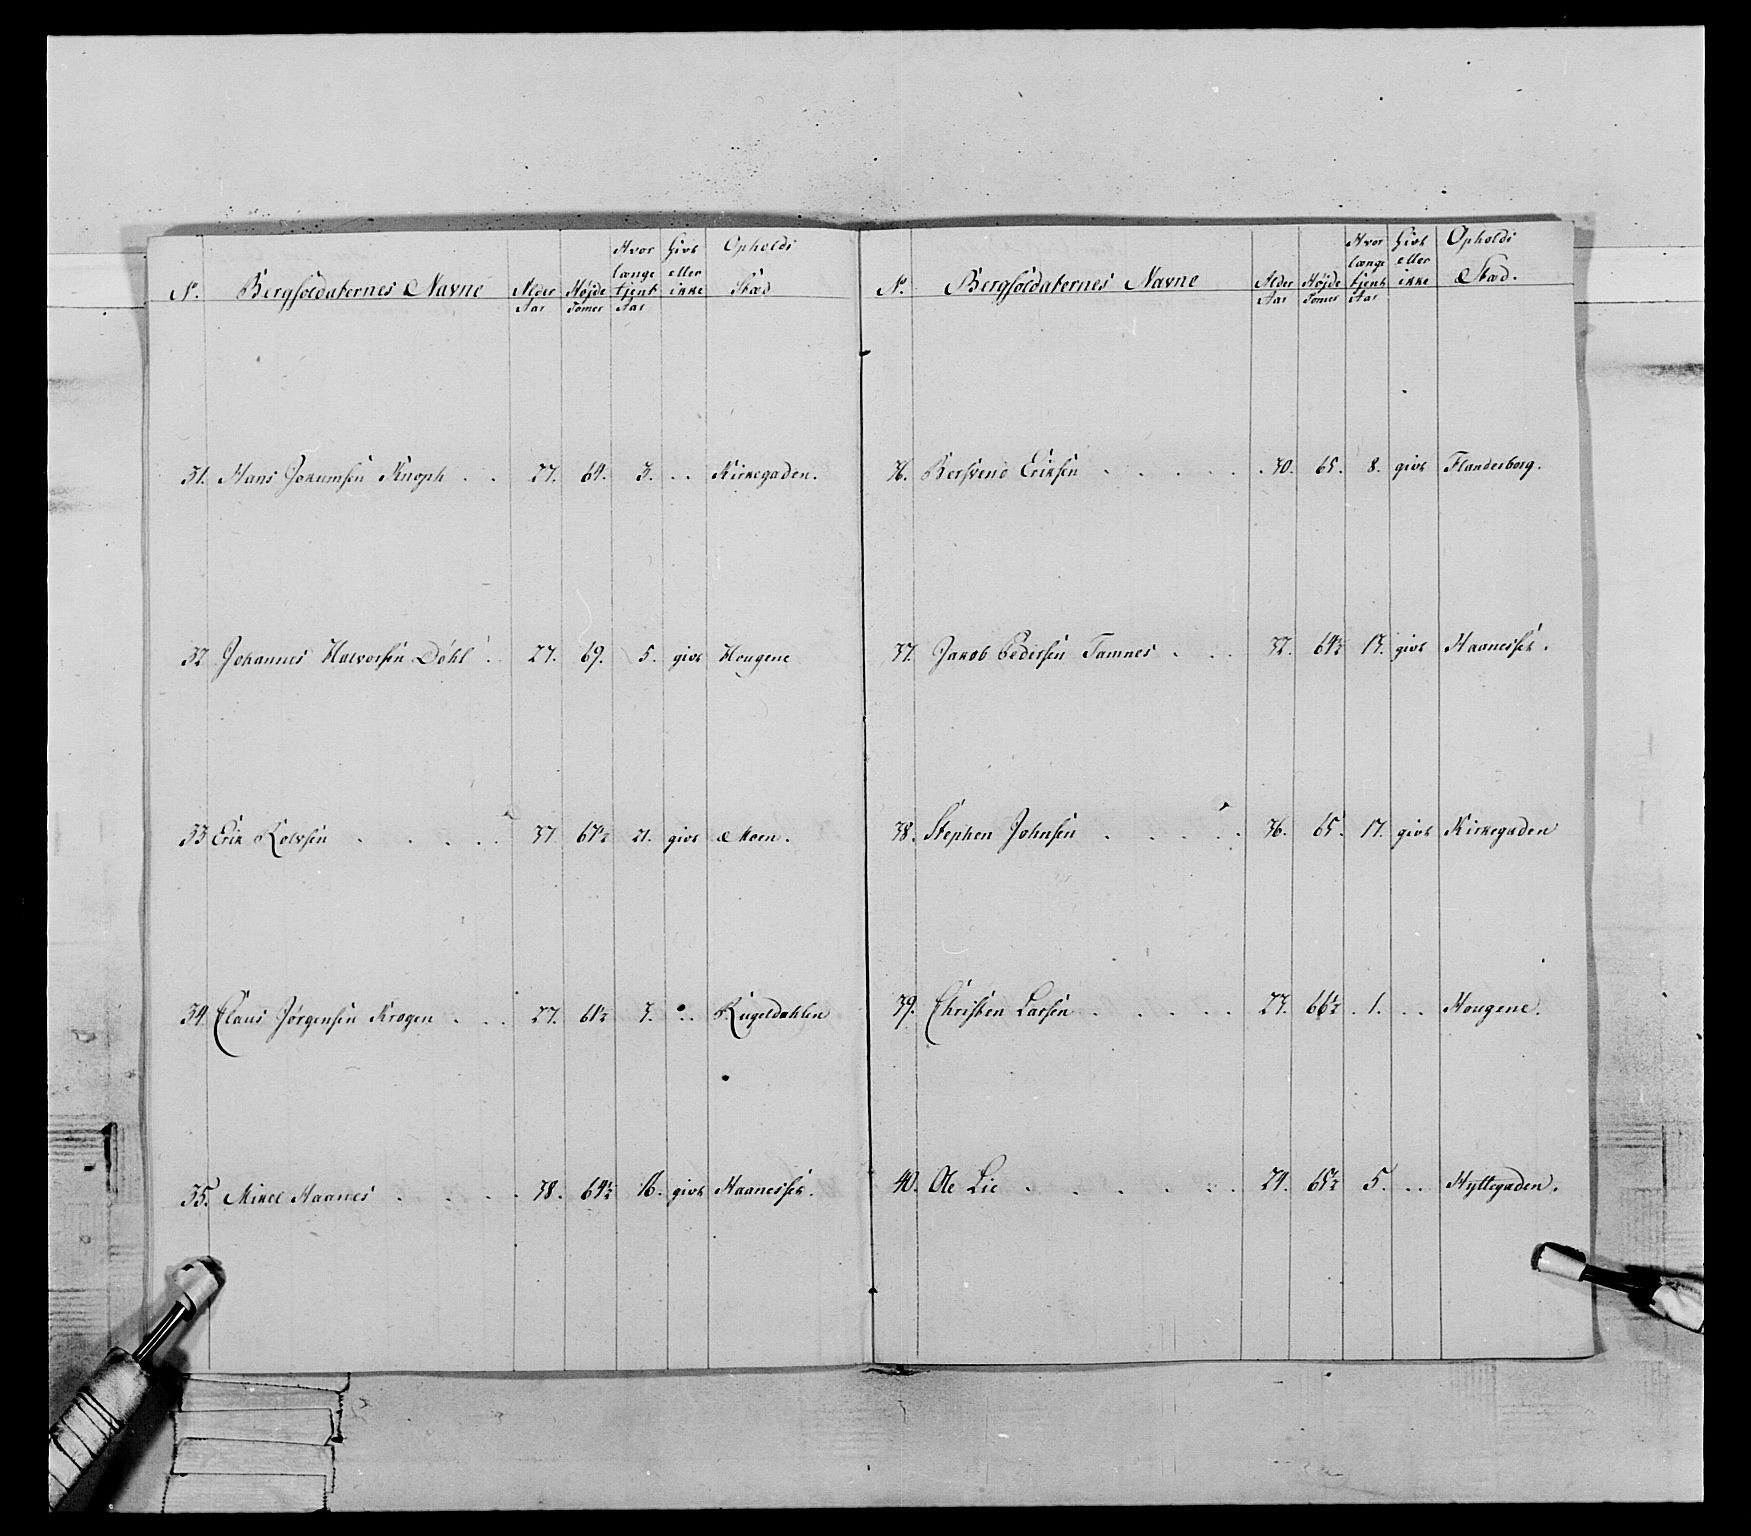 No. Bergsoldaternes Navne Alder Aar Højde Tomer Hvor længe tjent Aar Givt eller ikke Opholds Stæd
31. Hans Jokumsen Knoph . . 27. 64. 3. . . Kirkegaden.
32 Johannes Halvorsen Døhl . 27. 69. 5. givt Hougene
33 Erik Rolvsen . . . . . 37 67½ 21. givt Moen.
34. Claus Jørgensen Kragen . . . 27. 61½ 3. . . Kugeldahlen
35. Mikel Haanes . . . . 38. 64½ 16. givt Haanesset.
No. Bergsoldaternes Navne Alder Aar Højde Tomer Hvor længe tjent Aar Givt eller ikke Opholds Stæd.
36. Bersvend Eriksen . . . . . 30. 65. 8. givt Flanderborg.
37. Jakob Pedersen Tamnes . . . 32. 64½ 13. givt Haanesset.
38. Stephen Johnsen . . . . . 36. 65. 17. givt Kirkegaden
39. Christen Larsen . . . . . 23. 66½ 1. . . Hougene.
40. Ole Lie . . . . . 24. 65½ 5. . . Hyttegaden.